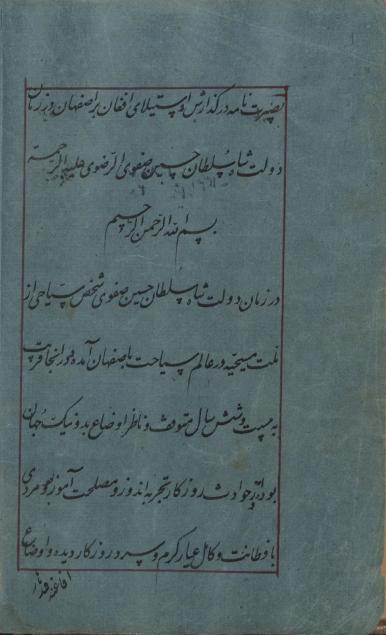 بصیرت نامه در گذارش و استیلای افغان بر اصفهان در زمان
دولت شاه سلطان حسین صفوی الرضوی علیه الرحمة
بسم الله الرحمن الرحیم
در زمان دولت شاه سلطان حسین صفوی شخص سیاحی از
ملت مسیحیه در عالم سیاحت باصفهان آمده و در انجا قریب
به بیست و شش سال متوقف و ناظر اوضاع بد و نیک جهان
بوده از حوادث روزگار تجربه اندوز و مصلحت آموز بود مردی
با فطانت و کامل عیار گرم و سرد روزگار دیده و اوضاع
افاغنه قندهار